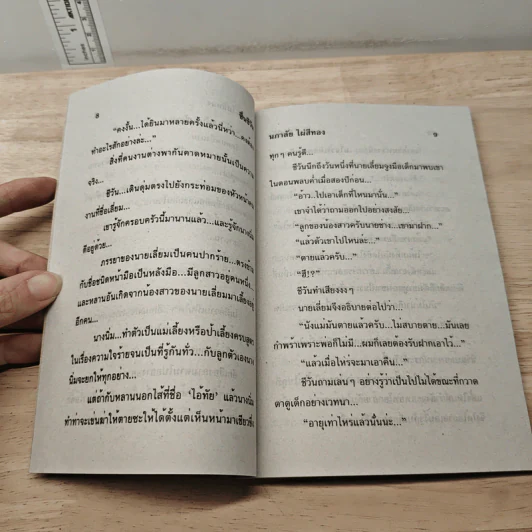 8
“คงงั้น...ได้ยินมาหลายครั้งแล้วนี่หว่า...คง
ทำอะไรสักอย่างล่ะ...”
สิ่งที่คนงานต่างพากันคาดหมายนั้นเป็นความ
จริง...
ชีวัน...เดินดุ่มตรงไปยังกระท่อมของหัวหน้า
งานที่ชื่อเลี่ยม...
เขารู้จักครอบครัวนี้มานานแล้ว...และรู้จัก
ดีอยู่ด้วย...
ภรรยาของนายเลี่ยมเป็นคนปากร้าย...ตรงข้าม
กับชื่อชนิดหน้ามือเป็นหลังมือ...มีลูกสาวอยู่คนหนึ่ง...
และหลานอันเกิดจากน้องสาวของนายเลี่ยมมาเลี้ยงอยู่
อีกคน...
นางนิ่ม...ทำตัวเป็นแม่เลี้ยงหรือป้าเลี้ยงครบสูตร
ในเรื่องความใจร้ายจนเป็นที่รู้กันทั่ว...กับลูกตัวเอง
นิ่มจะยกให้ทุกอย่าง...
แต่ถ้ากับหลานนอกไส้ที่ชื่อ ‘ไอทัย’ แล้ว
ทำท่าจะเข่นฆ่าให้ตายซะให้ได้ตั้งแต่เห็นหน้ามาเชียว
นภาลัย ไผ่สีทอง
9
ทุกๆ คนรู้ดี...
ชีวันนึกถึงวันหนึ่งที่นายเลี่ยมจูงมือเด็กมาพบเขา
ในตอนพลบค่ำเมื่อสองปีก่อน...
“อ้าว...ไปเอาเด็กที่ไหนมานั่น...”
เขาจำได้ว่าถามออกไปอย่างสงสัย...
“ลูกของน้องสาวครับนายช่าง...เขามาฝาก...”
“แล้วตัวเขาไปไหนล่ะ...”
“ตายแล้วครับ...”
“ฮึ!?”
ชีวันทำเสียงงงๆ
นายเลี่ยมจึงอธิบายต่อไปว่า...
“นังแม่มันตายแล้วครับ...ไม่สบายตาย...มันเลย
กำพร้าเพราะพ่อก็ไม่มี...ผมก็เลยต้องรับฝากเอาไว้...”
“แล้วเมื่อไหร่จะมาเอาคืน...”
ชีวันถามเล่นๆ อย่างรู้ว่าเป็นไปไม่ได้ขณะที่กวาด
ตาดูเด็กอย่างเวทนา...
“อายุเท่าไหร่แล้วนั่นน่ะ...”